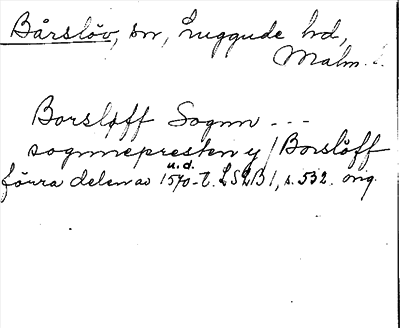 Bårslöv, sn, Luggude hd,
Malm. l.
Borsløff Sognn ---
sognneprestenn y / Borsløff
u. d.
förra delen av 1570-t. LSLB 1, s. 532. orig.